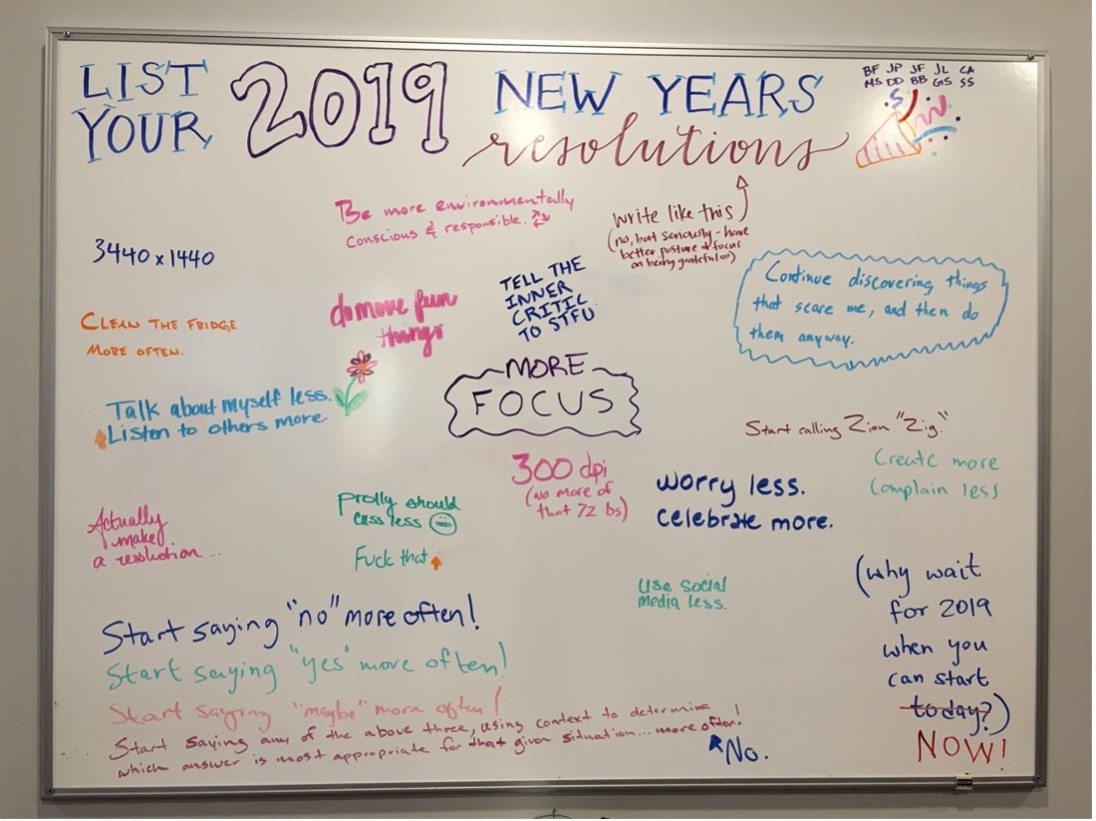 LIST YOUR 2019 NEW YEARS resolutions
BF JP JF JL CA
MS DD BB GS SS
Be more environmentally
conscious & responsible.
Write like this
(no, but seriously - have
better posture & focus
on being grateful ∞)
3440 x 1440
TELL THE
INNER
CRITIC
TO STFU
Continue discovering things
that scare me, and then do
them anyway.
do more fun
things
CLEAN THE FRIDGE
MORE OFTEN.
MORE
FOCUS
Talk about myself less.
Listen to others more.
Start calling Zion "Zig."
300 dpi
(no more of
that 72 bs)
Create more
Complain less
worry less.
celebrate more.
Actually
make
a resolution...
prolly should
cuss less
Fuck that
Use social
media less.
(why wait
for 2019
when you
can start
today?)
NOW!
Start saying "no" more often!
Start saying "yes" more often!
Start saying "maybe" more often!
Start saying any of the above three, using context to determine
which answer is most appropriate for that given situation... more often!
No.